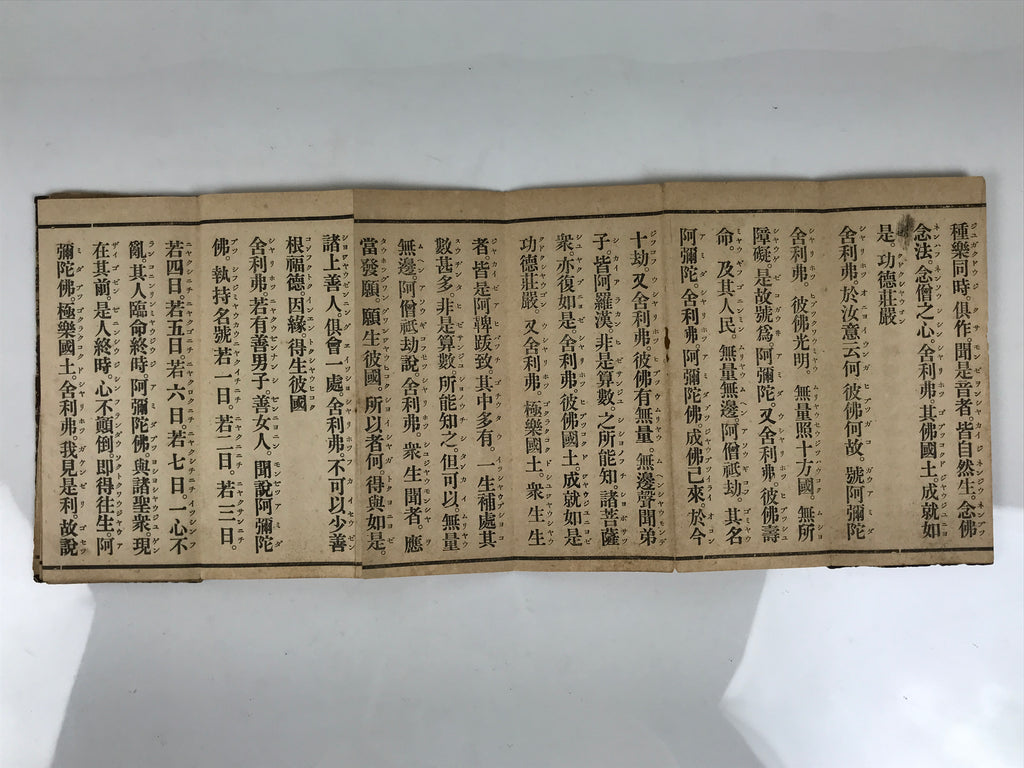 種樂同時。俱作。聞是音者。皆自然生。念佛
念法。念僧之心。舍利弗。其佛國土。成就如
是。功德莊嚴
舍利弗。於汝意云何。彼佛何故。號阿彌陀
舍利弗。彼佛光明。無量照十方國。無所
障礙。是故號爲。阿彌陀。又舍利弗。彼佛壽
命。及其人民。無量無邊。阿僧祇劫。其名
阿彌陀。舍利弗。阿彌陀佛。成佛已來。於今
十劫。又舍利弗。彼佛有無量。無邊聲聞弟
子。皆阿羅漢。非是算數。之所能知。諸菩薩
衆。亦復如是。舍利弗。彼佛國土。成就如是
功德莊嚴。又舍利弗。極樂國土。衆生生
者。皆是阿鞞跋致。其中多有。一生補處其
數甚多。非是算數。所能知之。但可以。無量
無邊。阿僧祇劫說。舍利弗。衆生聞者。應
當發願。願生彼國。所以者何。得與如是。
諸上善人。俱會一處。舍利弗。不可以少善
根福德。因緣。得生彼國
舍利弗。若有善男子。善女人。聞說阿彌陀
佛。執持名號。若一日。若二日。若三日。
若四日。若五日。若六日。若七日。一心不
亂。其人臨命終時。阿彌陀佛。與諸聖衆。現
在其前。是人終時。心不顛倒。即得往生。阿
彌陀佛。極樂國土。舍利弗。我見是利。故說